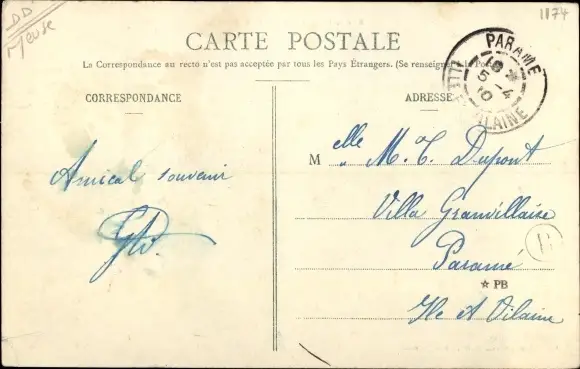 DD
Meuse
1174
CARTE POSTALE
La Correspondance au recto n'est pas acceptée par tous les Pays Étrangers. (Se renseigner à la Poste)
CORRESPONDANCE
ADRESSE
PARAMÉ
5 -4
10
ILLE ET VILAINE
Amical souvenir
Melle M. T. Dupont
Villa Granvillaise
Paramé
H
☆ PB
Ile et Vilaine